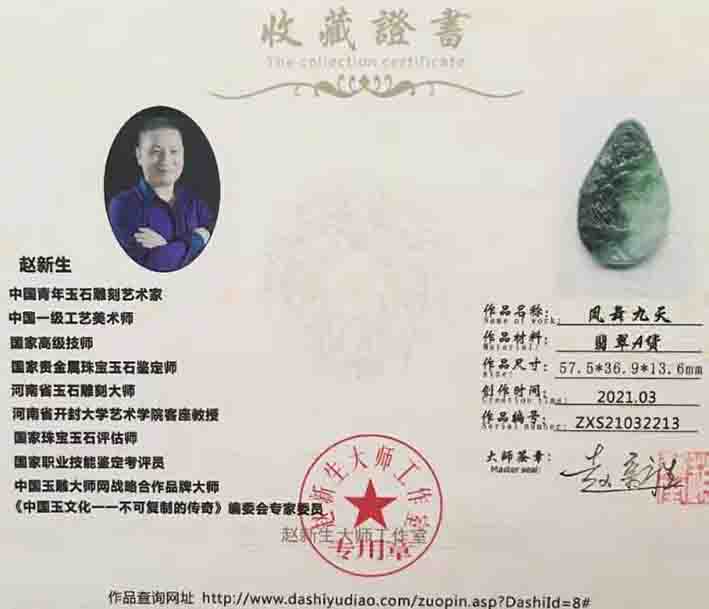 收藏證書
The collection certificate
赵新生
中国青年玉石雕刻艺术家
中国一级工艺美术师
国家高级技师
国家贵金属珠宝玉石鉴定师
河南省玉石雕刻大师
河南省开封大学艺术学院客座教授
国家珠宝玉石评估师
国家职业技能鉴定考评员
中国玉雕大师网战略合作品牌大师
《中国玉文化一一不可复制的传奇》编委会专家委员
作品名称: 凤舞九天
Name of work:
作品材料: 翡翠A货
Material:
作品尺寸: 57.5*36.9*13.6mm
size:
创作时间: 2021.03
Creation time:
作品编号: ZXS21032213
Serial number:
大师签章: 赵新生
Master seal:
赵新生大师工作室
赵新生大师工作室
专用章
作品查询网址 http://www.dashiyudiao.com/zuopin.asp?DashiId=8#